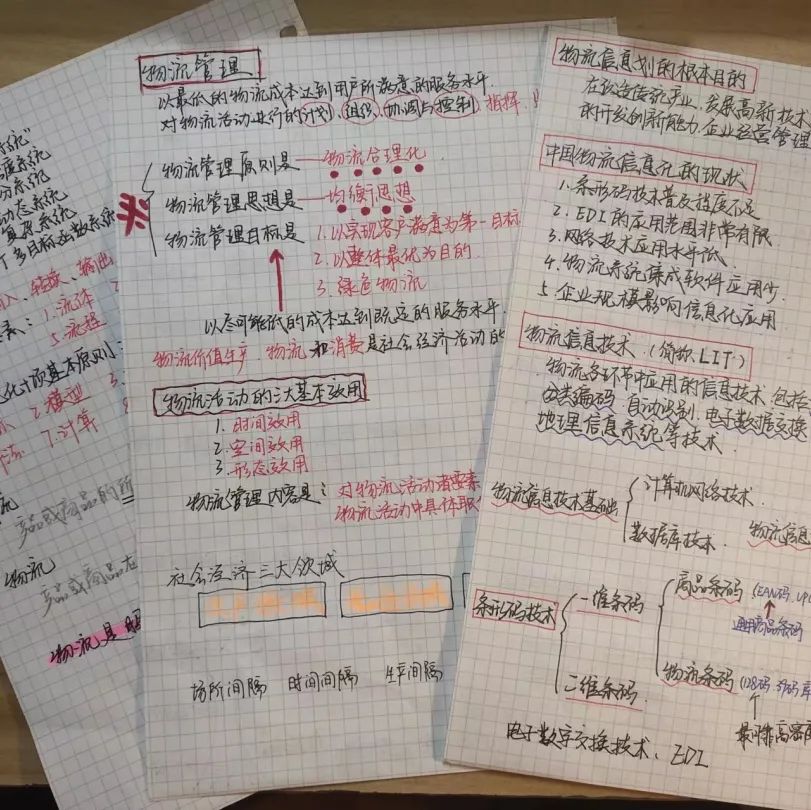 系统"
度系统
分系统
动态系统
复杂系统
个多目标函数系统
入、转换、输出
素：1.流体
5.流程
化计
基本原则：
2.模型
7.计算
流
产品或商品的所
物流
产品或商品在
物流是
物流管理
以最低的物流成本达到用户所满意的服务水平.
对物流活动进行的计划、组织、协调与控制 指挥
物流管理原则是——物流合理化
物流管理思想是——均衡思想
物流管理目标是 1.以实现客户满意为第一目标
2.以整体最优为目的
3.绿色物流
以尽可能低的成本达到既定的服务水平.
物流价值生产 物流和消费是社会经济活动的
物流活动的三大基本效用
1.时间效用
2.空间效用
3.形态效用
物流管理内容是：对物流活动诸要素
物流活动中具体职
社会经济三大领域
场所间隔 时间间隔
物流信息划的根本目的
在改造传统产业、发展高新技术
的开发创新能力、企业运营管理
中国物流信息化的现状
1.条形码技术普及程度不足
2.EDI的应用范围非常有限
3.网络技术应用水平低
4.物流系统集成软件应用少
5.企业规模影响信息化应用
物流信息技术（简称LIT）
物流各环节中应用的信息技术.包括
分类编码.自动识别.电子数据交换
地理信息系统等技术
物流信息技术基础
计算机网络技术.
数据库技术. 物流信息
条形码技术
一维条码
商品条码（EAN码.UP
通用商品条码
物流条码（128码.39码.库
二维条码
电子数字交换技术、EDI